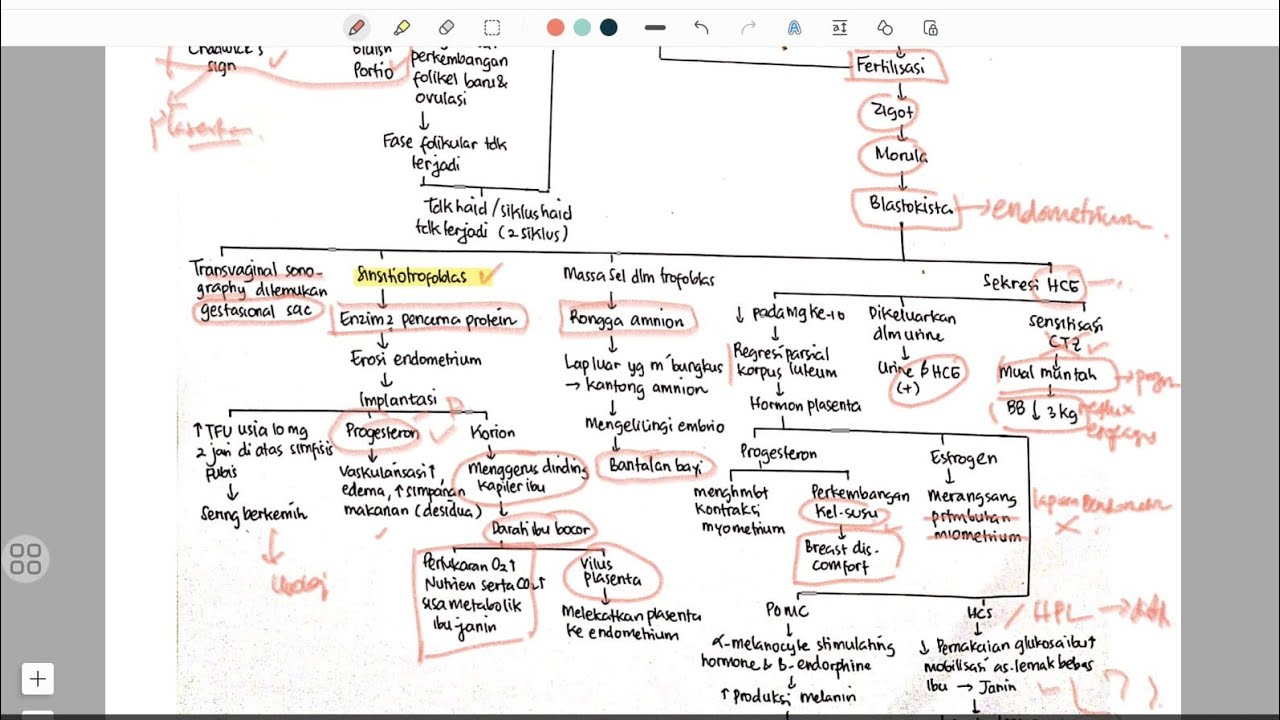 Chadwick's
sign
Bluish
Portio
perkembangan
folikel baru &
ovulasi
Fase folikular tdk
terjadi
Tdk haid / siklus haid
tdk terjadi (2 siklus)
Fertilisasi
Zigot
Morula
Blastokista
endometrium
Transvaginal sono-
graphy ditemukan
gestasional sac
Sinsitiotrofoblas
Enzim2 pencerna protein
Erosi endometrium
Implantasi
↑ TFU usia 10 mg
2 jari di atas simfisis
pubis
Sering berkemih
Progesteron
Vaskularisasi ↑,
edema, ↑ simpanan
makanan (desidua)
Korion
Menggerus dinding
kapiler ibu
Darah ibu bocor
Pertukaran O2 ↑
Nutrien serta CO2 ↑
sisa metabolik
ibu-janin
Vilus
plasenta
Melekatkan plasenta
ke endometrium
Massa sel dlm trofoblas
Rongga amnion
Lap luar yg m'bungkus
→ kantong amnion
Mengelilingi embrio
Bantalan bayi
Sekresi HCG
↓ pada Mg ke-10
Regresi parsial
korpus luteum
Hormon plasenta
Dikeluarkan
dlm urine
Urine β HCG
(+)
Sensitisasi
CTZ
Mual muntah
BB ↓ 3 kg
reflux
Progesteron
menghmbt
kontraksi
myometrium
Perkembangan
kel-susu
Breast dis-
comfort
Estrogen
Merangsang
prtmbuhan
miometrium
POMC
α-melanocyte stimulating
hormone & β-endorphine
↑ Produksi melanin
HCS
/ HPL →
↓ Pemakaian glukosa ibu ↑
mobilisasi as. lemak bebas
Ibu → Janin